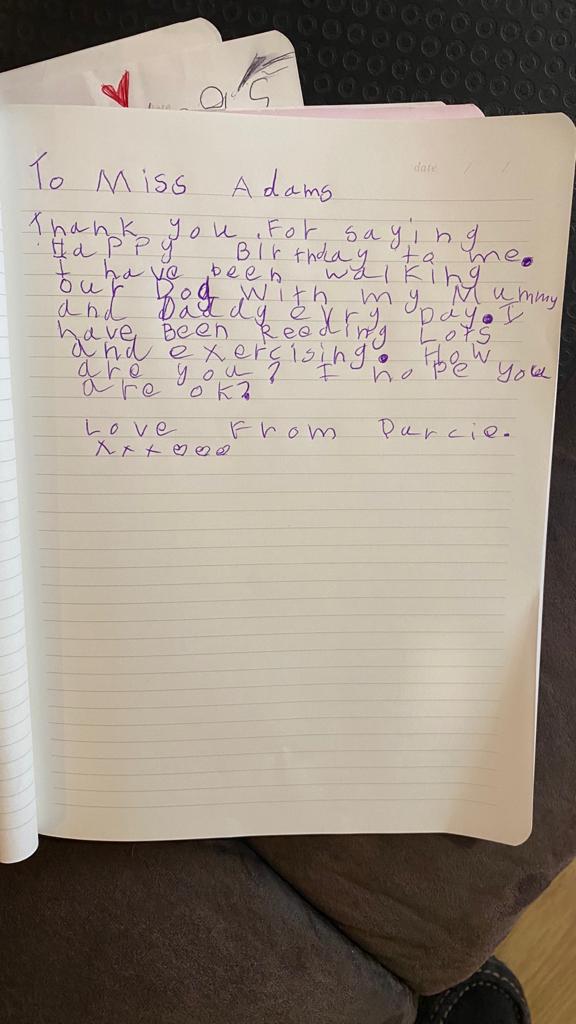 date / /
To Miss Adams
Thank you. For saying
Happy Birthday to me.
I have been walking
our Dog with my Mummy
and Daddy evry Day. I
have Been Reading Lots
and exercising. How
are you? I hope you
are ok?
Love From Darcie.
x x x o o o